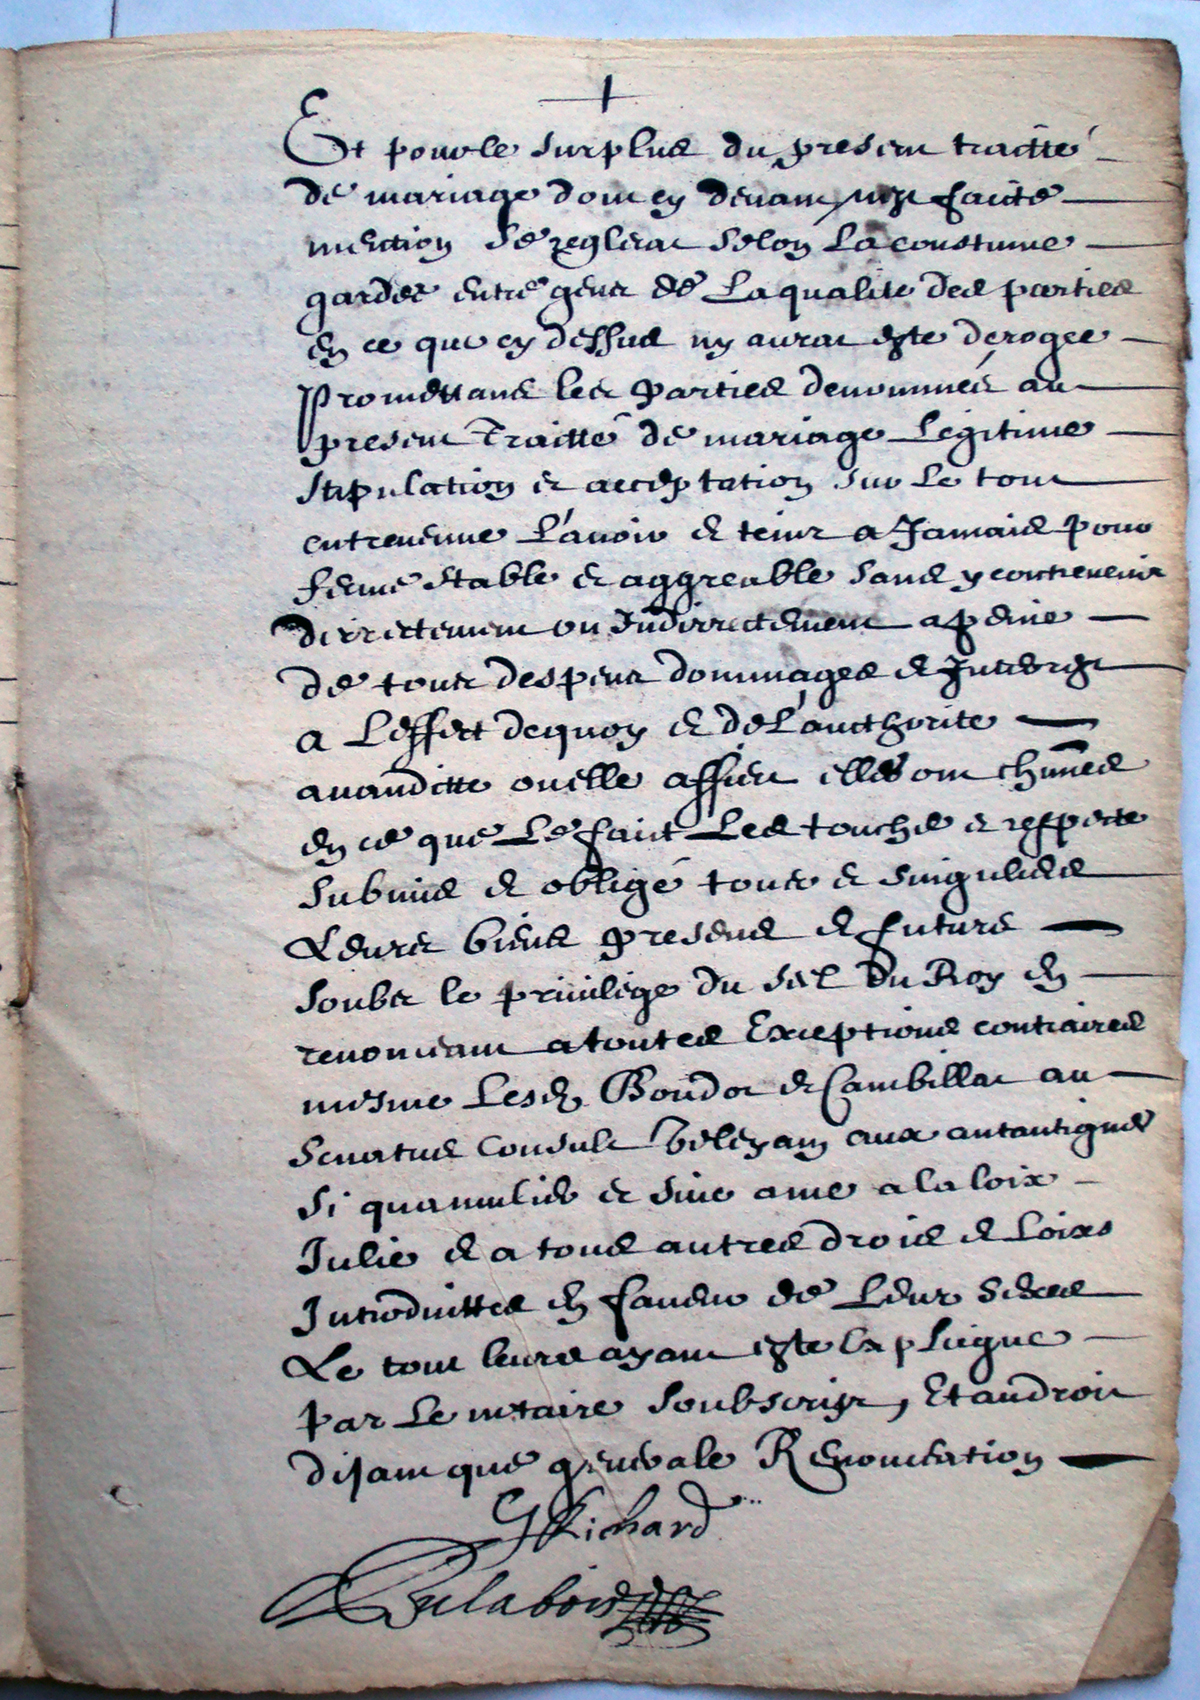 Et pour le surplus du present traitté
de mariage dont cy devant n'est faicte
mention se reglerat selon la coustume
gardée entre gens de la qualité des parties
en ce que cy dessus ny aurat este derogee
Promettans les parties denommées au
present traitté de mariage legitime
stipulation et acceptation sur le tout
entrevenue l'avoir et tenir a jamais pour
ferme stable et aggreable sans y contrevenir
dirrectement ou indirrectement a peine
de tous despens dommages et interest
a l'effect de quoy et de l'aucthorite
avanditte ou elle affiert elles ont chūnes
en ce que le faict les touche et respecte
submis et obligé tous et singuliers
leurs biens presens et futurs
soubs le privilege du seel du Roy en
renonceant a toutes exceptions contraires
mesme lesd. Boudot et Cambillat au
senatus consult veleyam aux autantiques
si qua mulier et sive a me a la loix
Julie et a tous autres drois et loixs
introduittes en faveur de leur sexes
le tout leurs ayant este expliqué
par le notaire soubscript, et au droit
disant que generale renonceation
G Richard